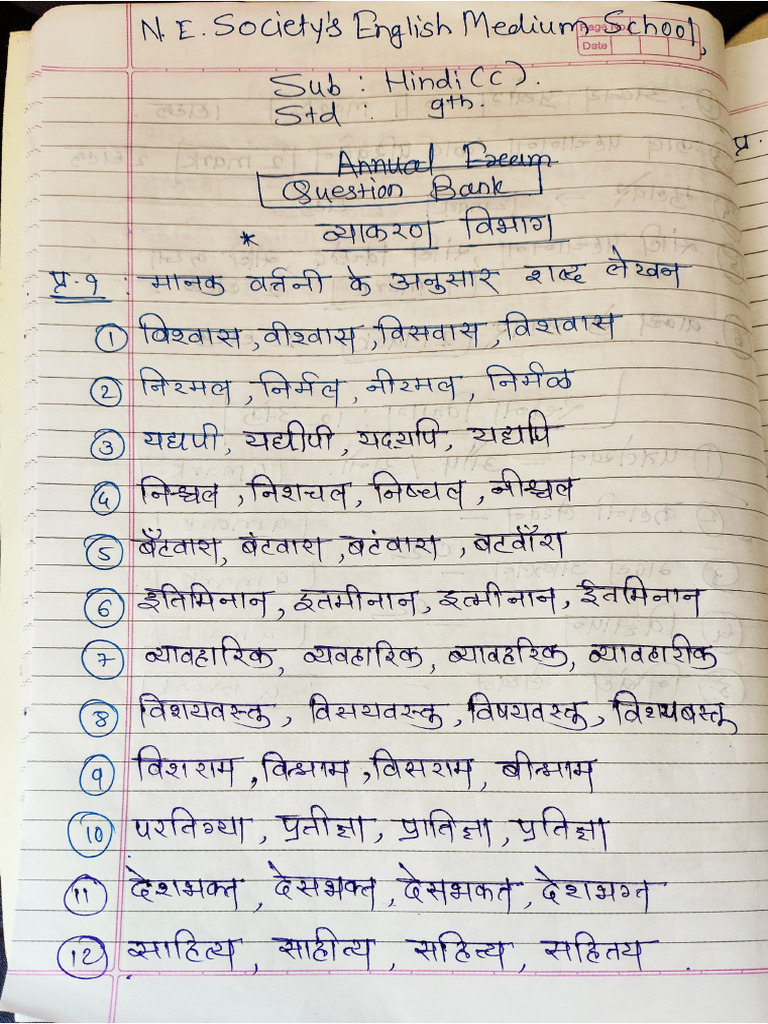 N. E. Society's English Medium School,
Page No.
Date
Sub : Hindi (C).
Std : 9th.
Annual Exam
Question Bank
* व्याकरण विभाग
प्र. १ : मानक वर्तनी के अनुसार शब्द लेखन
① विश्वास, वीश्वास, विसवास, विशवास
② निरमल, निर्मल, नीरमल, निर्मळ
③ यद्यपी, यद्यीपी, यदयपि, यद्यपि
④ निश्चल, निशचल, निष्चल, नीश्चल
⑤ बँटवारा, बंटवारा, बटंवारा, बटवाँरा
⑥ इतिमिनान, इतमीनान, इत्मीनान, ईतमिनान
⑦ व्यावहारिक, व्यवहारिक, ब्यावहरिक, व्यावहारीक
⑧ विशयवस्तु, विसयवस्तु, विषयवस्तु, विशयबस्तू
⑨ विशराम, विश्राम, विसराम, बीश्राम
⑩ परतिग्या, प्रतीज्ञा, प्रातिज्ञा, प्रतिज्ञा
⑪ देशभक्त, देसभक्त, देसभकत, देशभग्त
⑫ साहित्य, साहीत्य, सहित्य, सहितय
प्र.